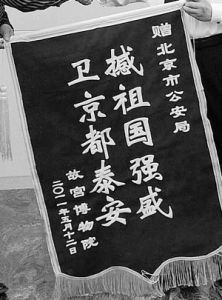 赠北京市公安局
撼祖国强盛
卫京都泰安
故宫博物院
二〇一一年五月十三日